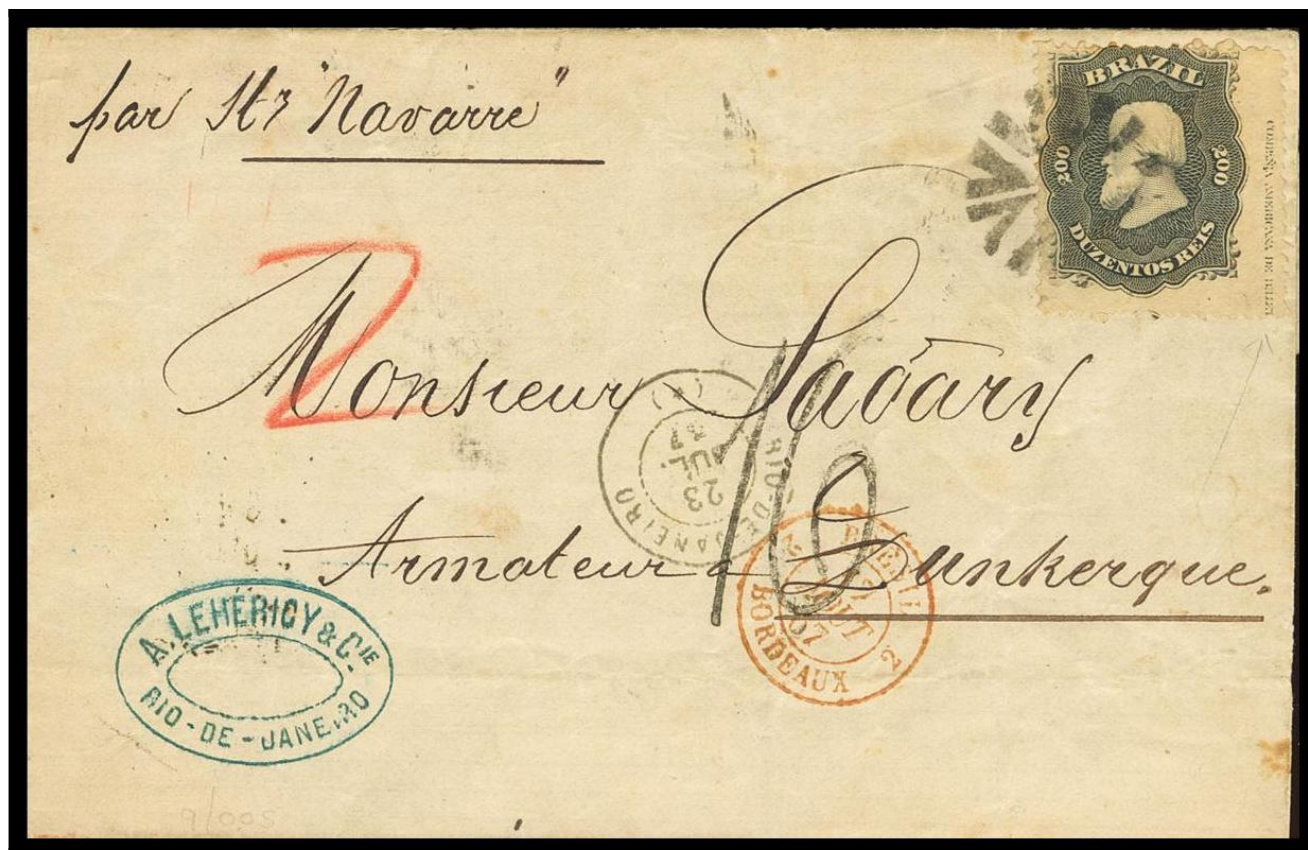 par Str "Navarre"
BRAZIL
200
200
DUZENTOS REIS
2
Monsieur Savary
RIO-DE-JANEIRO
23
JUIL.
67
10
Armateur à Dunkerque.
2
BORDEAUX
2
AOUT
67
A. LEHÉRICY & Cie
RIO-DE-JANEIRO
9/005